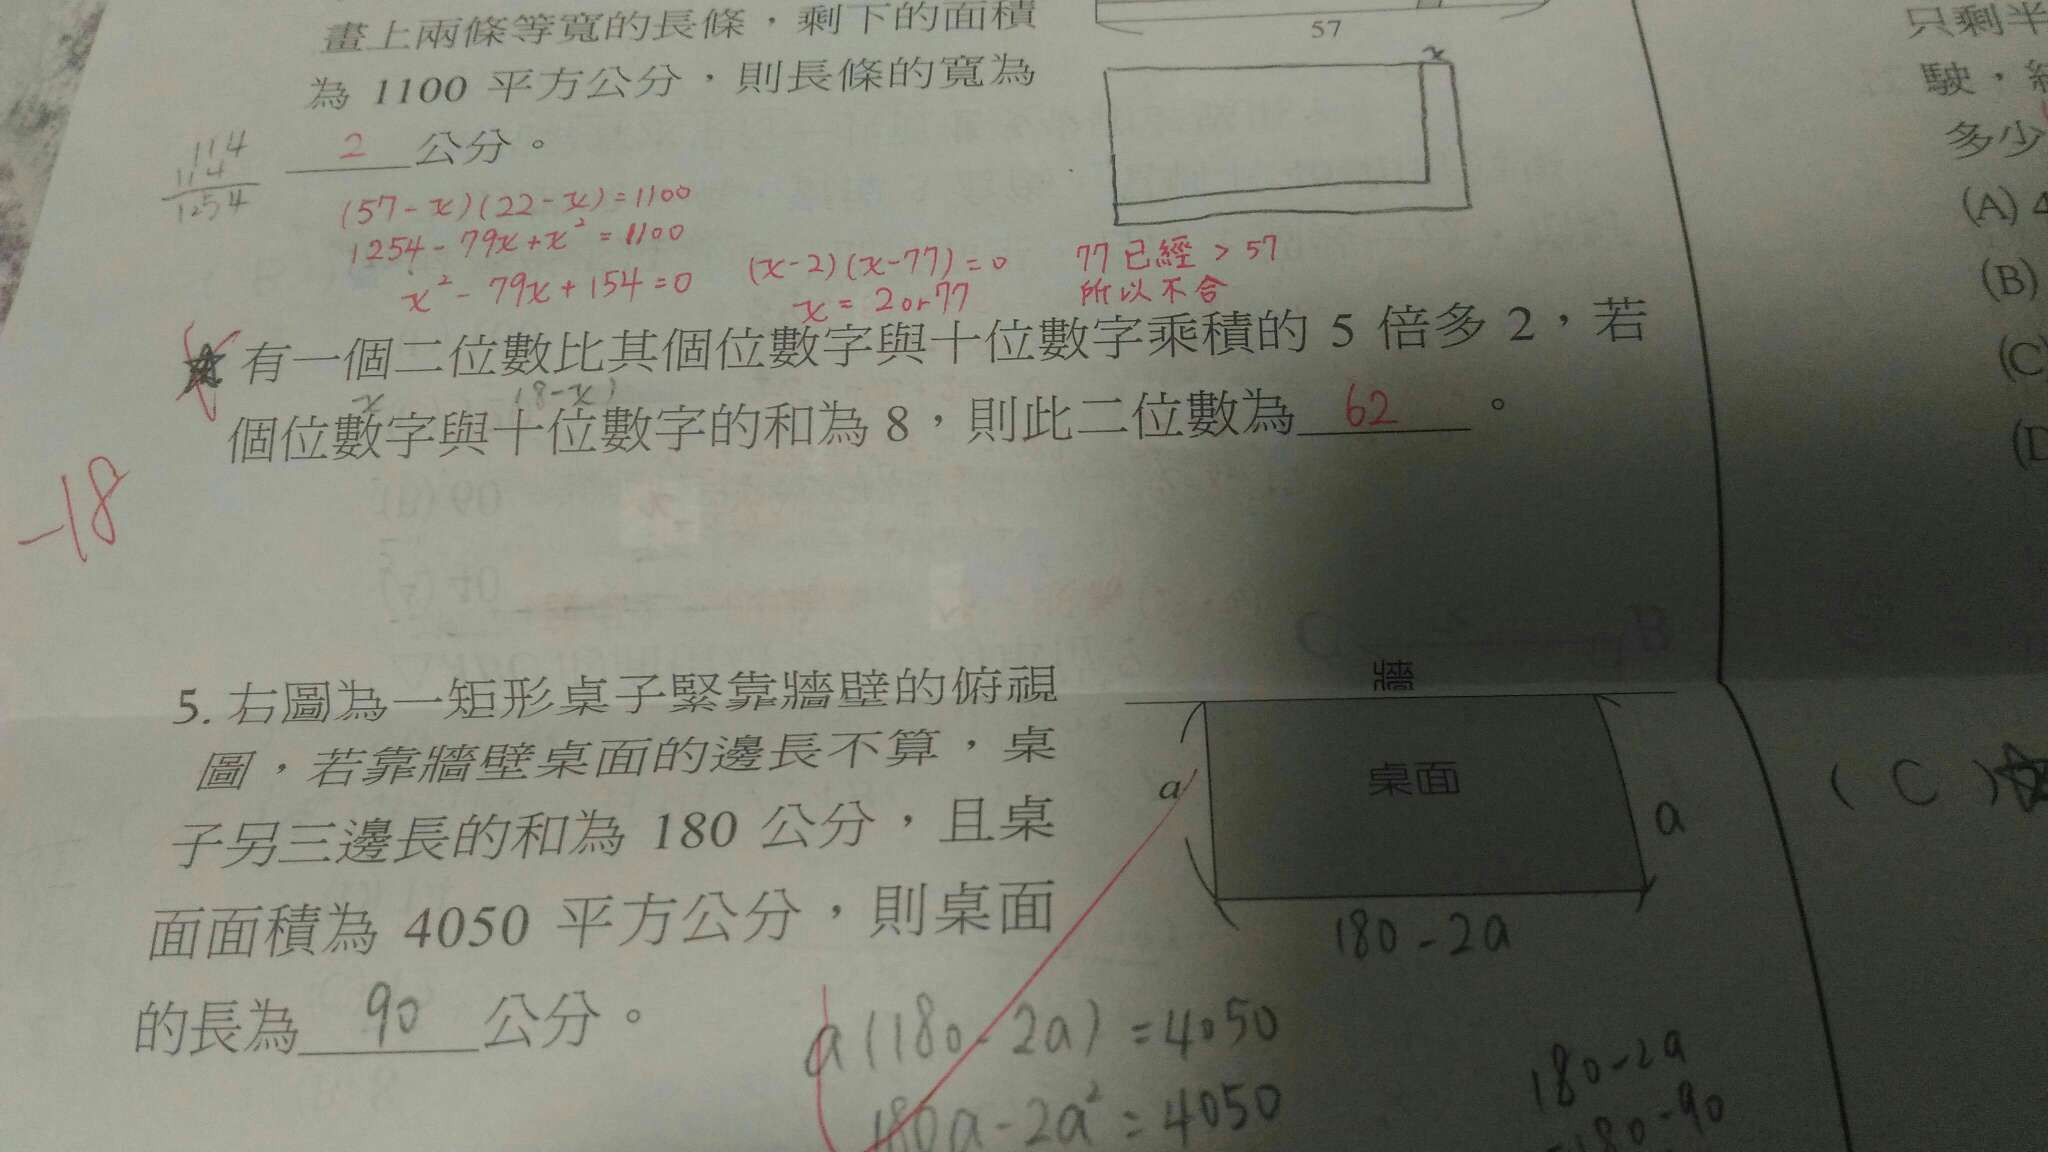 畫上兩條等寬的長條，剩下的面積
為 1100 平方公分，則長條的寬為
2 公分。
57
x
114
114
1254
(57-x)(22-x)=1100
1254-79x+x²=1100
x²-79x+154=0
(x-2)(x-77)=0
x=2or77
77已經>57
所以不合
有一個二位數比其個位數字與十位數字乘積的 5 倍多 2，若
x (8-x)
個位數字與十位數字的和為 8，則此二位數為 62 。
-18
5. 右圖為一矩形桌子緊靠牆壁的俯視
圖，若靠牆壁桌面的邊長不算，桌
子另三邊長的和為 180 公分，且桌
面面積為 4050 平方公分，則桌面
的長為 90 公分。
牆
桌面
a
a
180-2a
a(180-2a)=4050
180a-2a²=4050
180-2a
180-90
只剩半
駛，
多少
(A) 4
(B)
(C)
(D
( C )